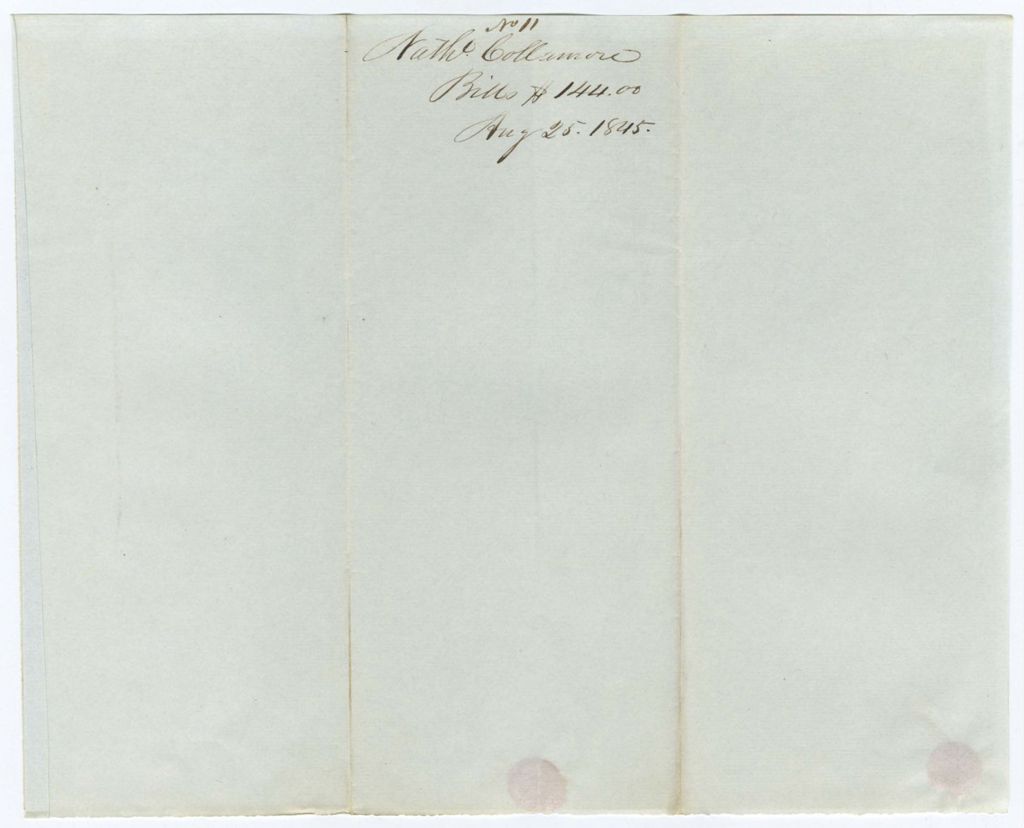 No 11
Nathl. Collamore
Bills $ 144.00
Aug 25. 1845.